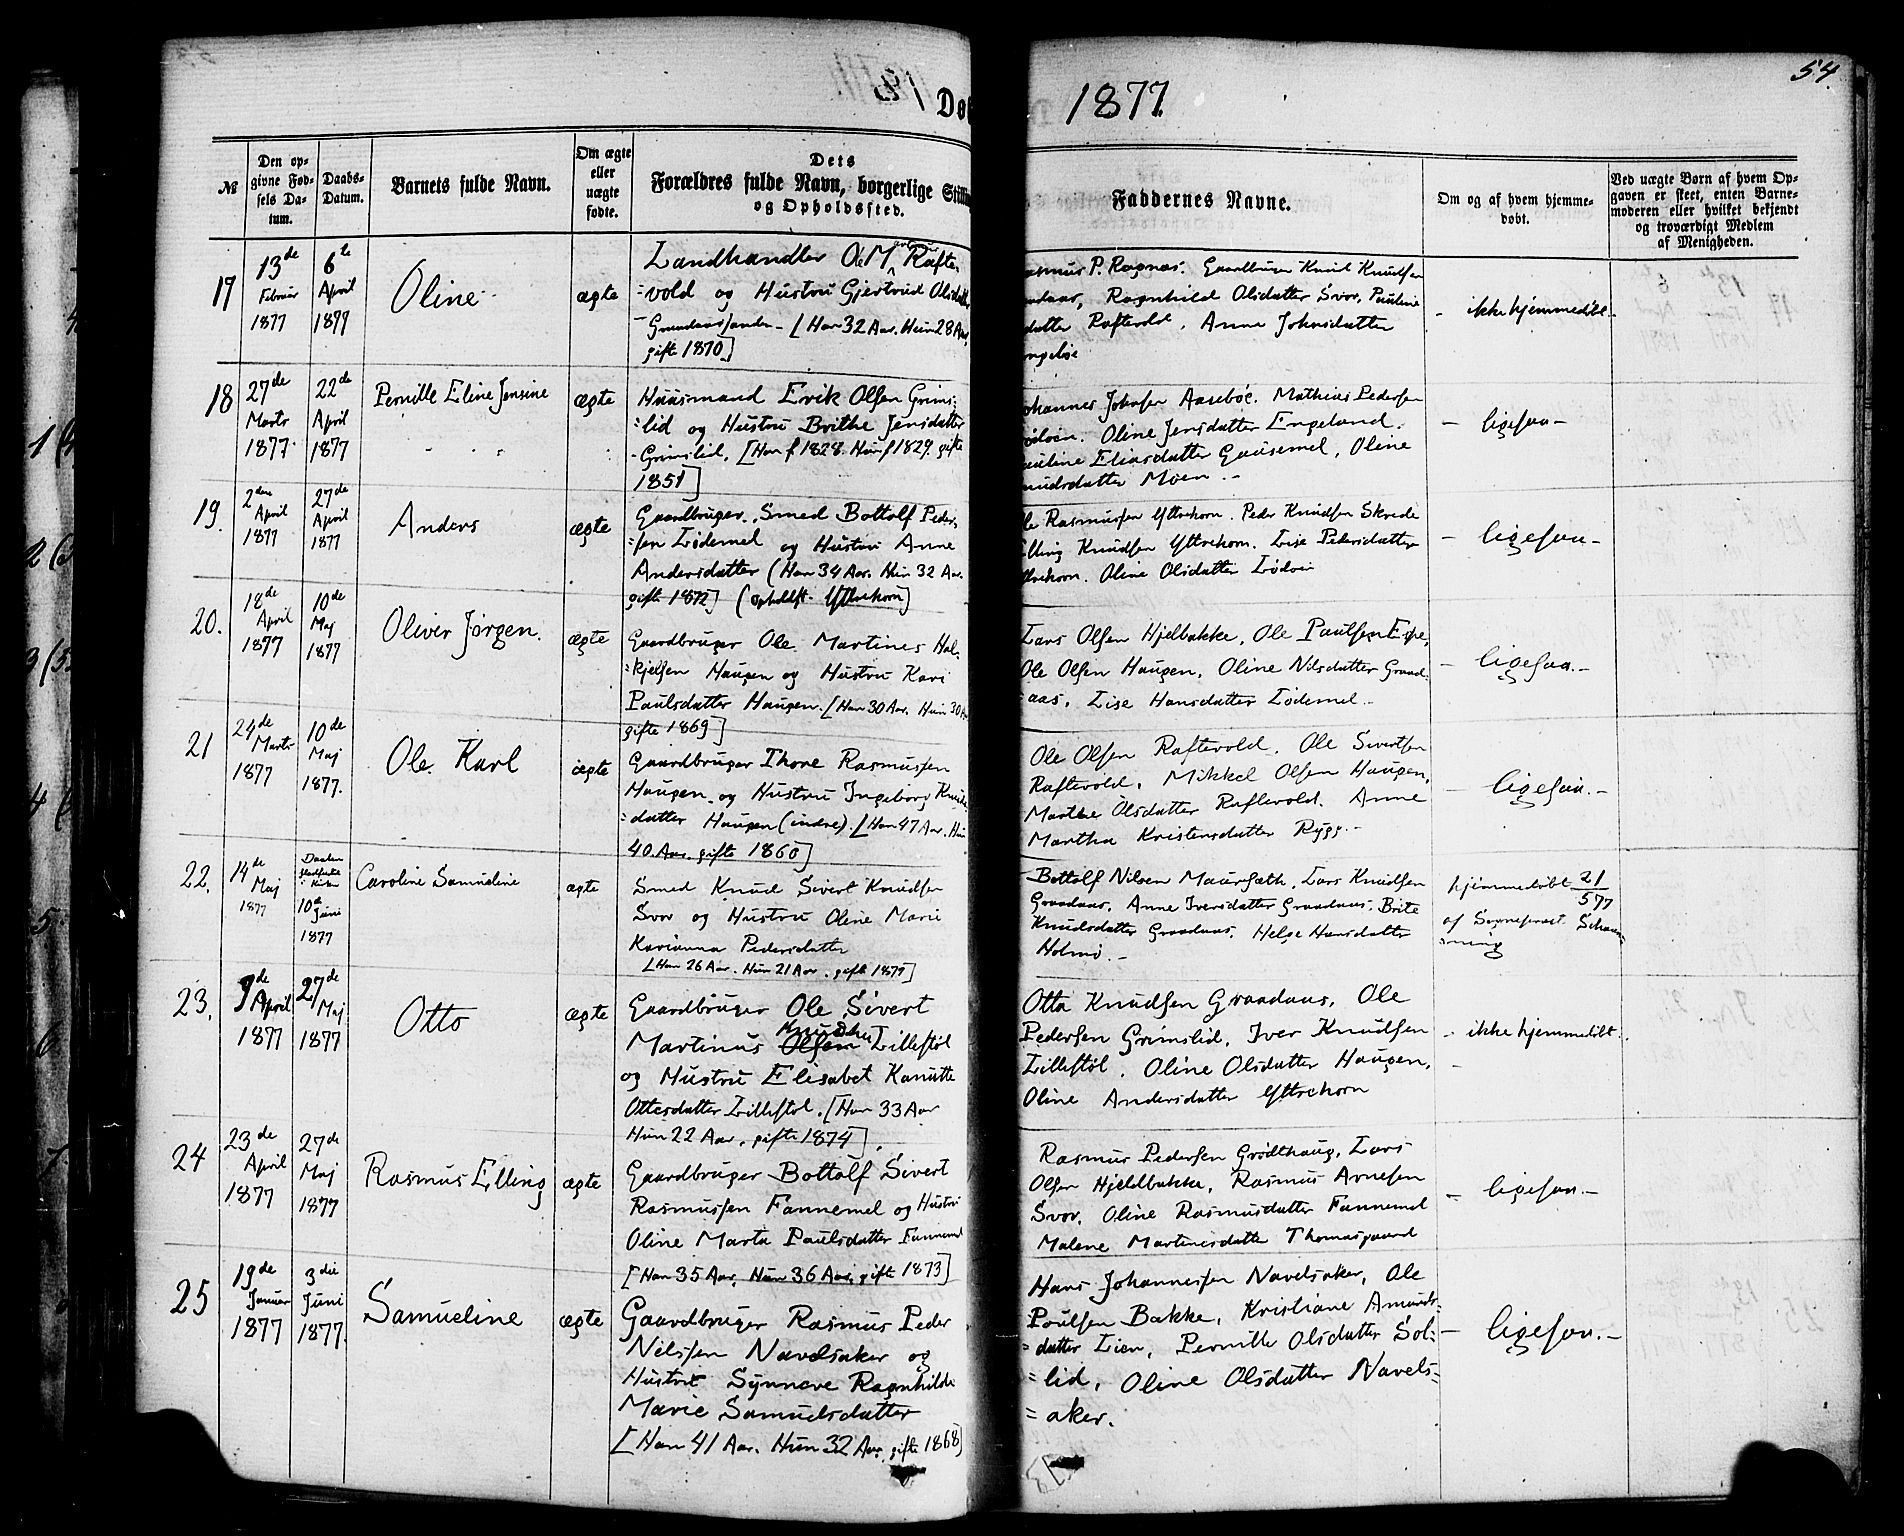 54.
1877
Døb
№
Den op-
givne Fød-
sels Da-
tum.
Daabs-
Datum.
Barnets fulde Navn.
Om ægte
eller
uægte
fødte.
Dets
Forældres fulde Navn, borgerlige Stilli
og Opholdssted.
Faddernes Navne.
Om og af hvem hjemme-
døbt.
Ved uægte Børn af hvem Op-
gaven er skeet, enten Barne-
moderen eller hvilket bekjendt
og troværdigt Medlem
af Menigheden.
17
13de
Februar
1877
6te
April
1877
Oline
ægte
Landhandler Ole M Rafte-
=vold og Hustru Gjertrud Olsdatt
Grundaassanden - [Han 32 Aar, Hun 28 Aar,
gifte 1870]
asmus P. Ragnas. Gaardbruger Knut Knudsen
Ragnhild Olsdatter Svor, Pauline
datter Raftevold, Anne Johnsdatter
- ikke hjemmedøbt -
18
27de
Marts
1877
22de
April
1877
Pernille Eline Jensine
ægte
Huusmand Erik Olsen Grims-
=lid og Hustru Brithe Jensdatter
Grimslid, [Han f 1828. Hun f 1829. gifte
1851]
ohannes Johnsen Aasebøe. Mathias Pedersen
Oline Jensdatter Engeland.
auline Eliasdatter Gausemel, Oline
nudsdatter Moen -
- ligesaa -
19.
2den
April
1877
27de
April
1877
Anders
ægte
Gaardbruger. Smed Bottolf Peder-
=sen Lødemel og Hustru Anne
Andersdatter (Han 34 Aar. Hun 32 Aar.
gifte 1872] (opholdst. Yttrehorn)
le Rasmussen Yttrehorn. Peder Knudsen Skrede
lling Knudsen Yttrehorn. Lise Pedersdatter
ttrehorn. Oline Olsdatter Lødoen
- ligesaa -
20.
18de
April
1877
10de
Maj
1877
Oliver Jørgen.
ægte
Gaardbruger Ole Martines Hal-
=kjelsen Haugen og Hustru Kari
Paulsdatter Haugen. [Han 30 Aar. Hun 30 A
gifte 1869]
Lars Olsen Hjelbakke, Ole Paulsen Espe,
Ole Olsen Haugen, Oline Nilsdatter Graad-
=aas, Lise Hansdatter Lødemel -
- ligesaa. -
21
24de
Marts
1877
10de
Maj
1877.
Ole Karl
ægte
Gaardbruger Thore Rasmussen
Haugen og Hustru Ingeborg Knuds
=datter Haugen (indre). [Han 47 Aar. Hun
40 Aar. gifte 1860]
Ole Olsen Raftevold. Ole Sivertsen
Raftevold, Mikkel Olsen Haugen,
Marthe Olsdatter Raftevold. Anne
Martha Kristensdatter Rygg. -
- ligesaa. -
22.
14de
Maj
1877
Daaben
stadfæstet
i Kirken
10de
Juni
1877
Caroline Samueline
ægte
Smed Knud Sivert Knudsen
Svor og Hustru Oline Marie
Karianna Pedersdatter
[Han 26 Aar. Hun 21 Aar. gifte 1877]
Bottolf Nilsen Maursæth, Lars Knudsen
Graadaas, Anne Iversdatter Graadaas, Brite
Knudsdatter Graadaas, Helge Hansdatter
Holmø. -
hjemmedøbt 21/577
af Sognepræst Schan-
=ning
23.
9de
April
1877
27de
Maj
1877
Otto
ægte
Gaardbruger Ole Sivert
Knudsen
Martinus Olsen Lillestøl
og Hustru Elisabet Kanutte
Ottesdatter Lillestøl. [Han 33 Aar
Hun 22 Aar, gifte 1874]
Otto Knudsen Graadaas, Ole
Pedersen Grimslid, Iver Knudsen
Lillestøl. Oline Olsdatter Haugen,
Oline Andersdatter Yttrehorn
- ikke hjemmedøbt.
24
23de
April
1877
27de
Maj
1877
Rasmus Elling
ægte
Gaardbruger Bottolf Sivert
Rasmussen Fannemel og Hustru
Oline Marta Paulsdatter Fannemel
[Han 35 Aar, Hun 36 Aar, gifte 1873]
Rasmus Pedersen Grødthaug, Lars
Olsen Hjeldbakke, Rasmus Arnesen
Svor. Oline Rasmusdatter Fannemel
Malene Martinusdatter Thomasgaard
- ligesaa. -
25
19de
Januar
1877
3die
Juni
1877.
Samueline
ægte
Gaardbruger Rasmus Peder
Nilssen Navelsaker og
Hustru Synneve Ragnhilde
Marie Samuelsdatter
[Han 41 Aar. Hun 32 Aar, gifte 1868]
Hans Johannessen Navelsaker, Ole
Poulsen Bakke, Kristiane Amunds-
=datter Lien, Pernille Olsdatter Sol-
=lid, Oline Olsdatter Navels-
=aker.
- ligesaa. -